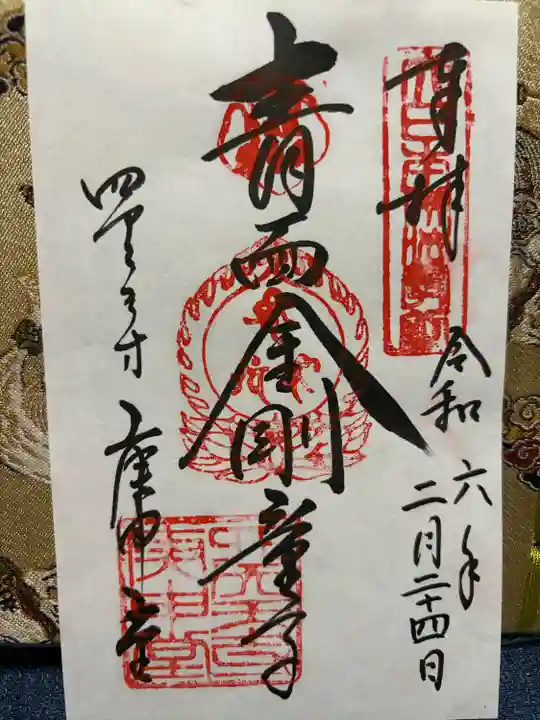 奉拝
令和六年
二月二十四日
青面金剛童子
四天王寺 庚申堂
庚申堂